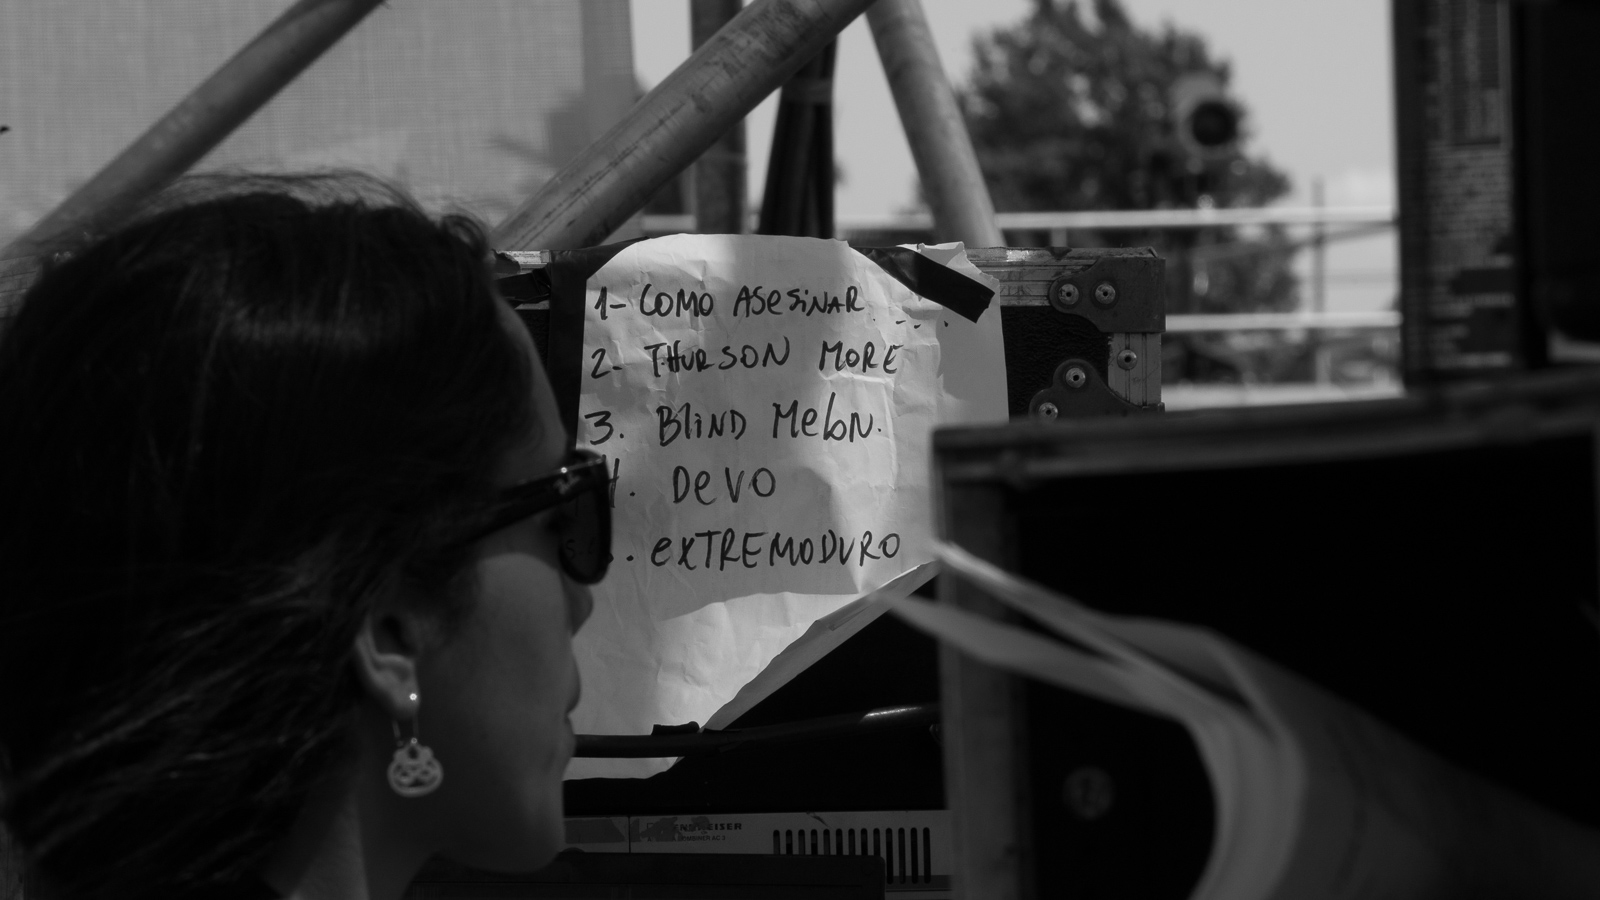 1- COMO ASESINAR . . . .
2- THURSON MORE
3. BLIND MELON.
4. DEVO
. EXTREMODURO